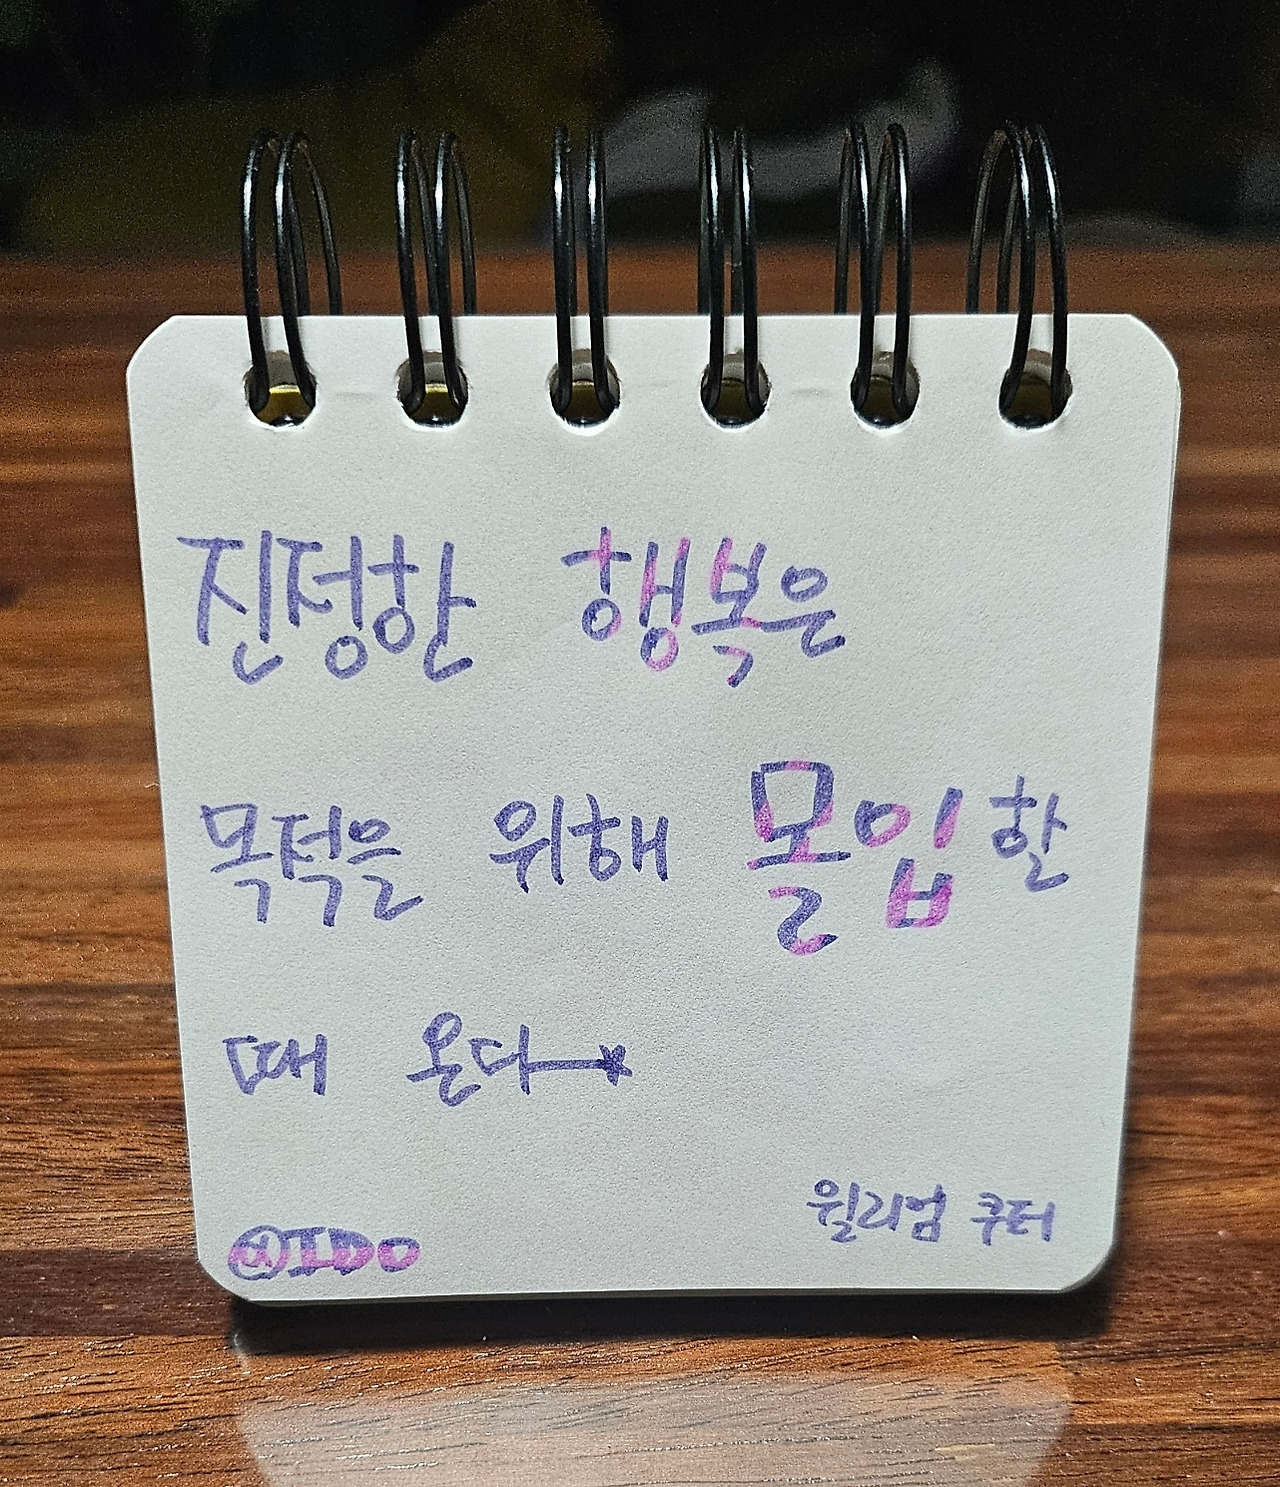 진정한 행복은
목적을 위해 몰입할
때 온다
윌리엄 쿠터
IDO